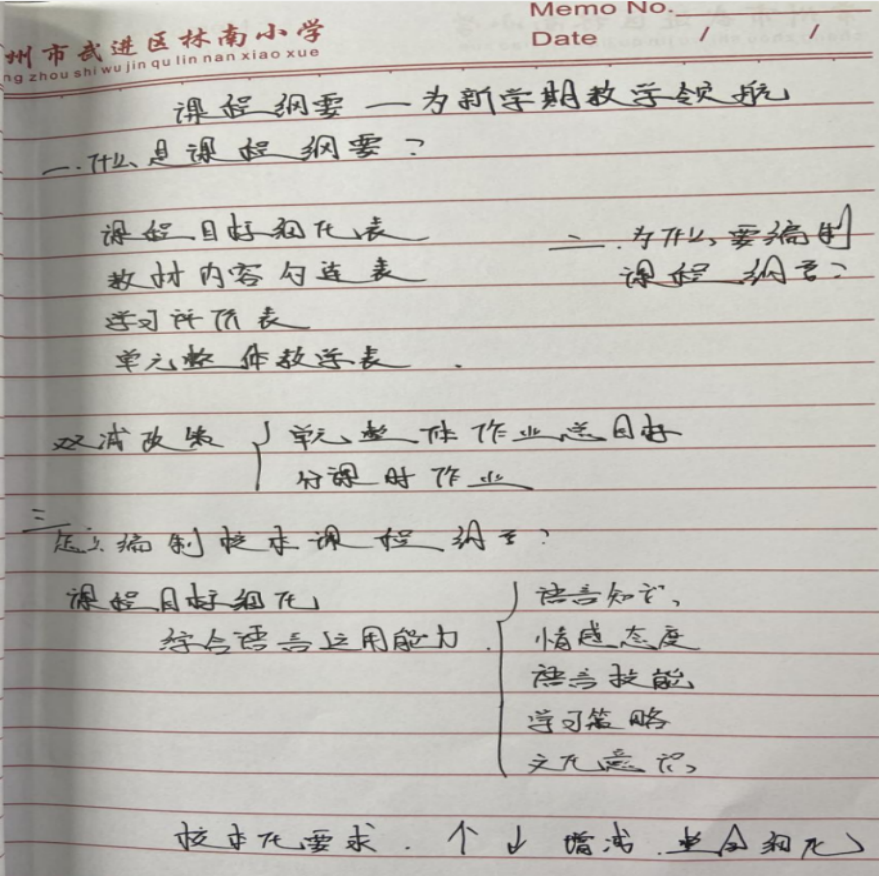 州市武进区林南小学
ng zhou shi wu jin qu lin nan xiao xue
Memo No.
Date / /
课程纲要 — 为新学期教学领航
一.什么是课程纲要?
课程目标细化表
教材内容勾连表
学习评价表
单元整体教学表.
二.为什么要编制
课程纲要?
双减政策 { 单元整体作业总目标
分课时作业
三
怎么编制校本课程纲要?
课程目标细化
综合语言运用能力
语言知识
情感态度
语言技能
学习策略
文化意识
校本化要求. 个 ↓ 增减.整合细化